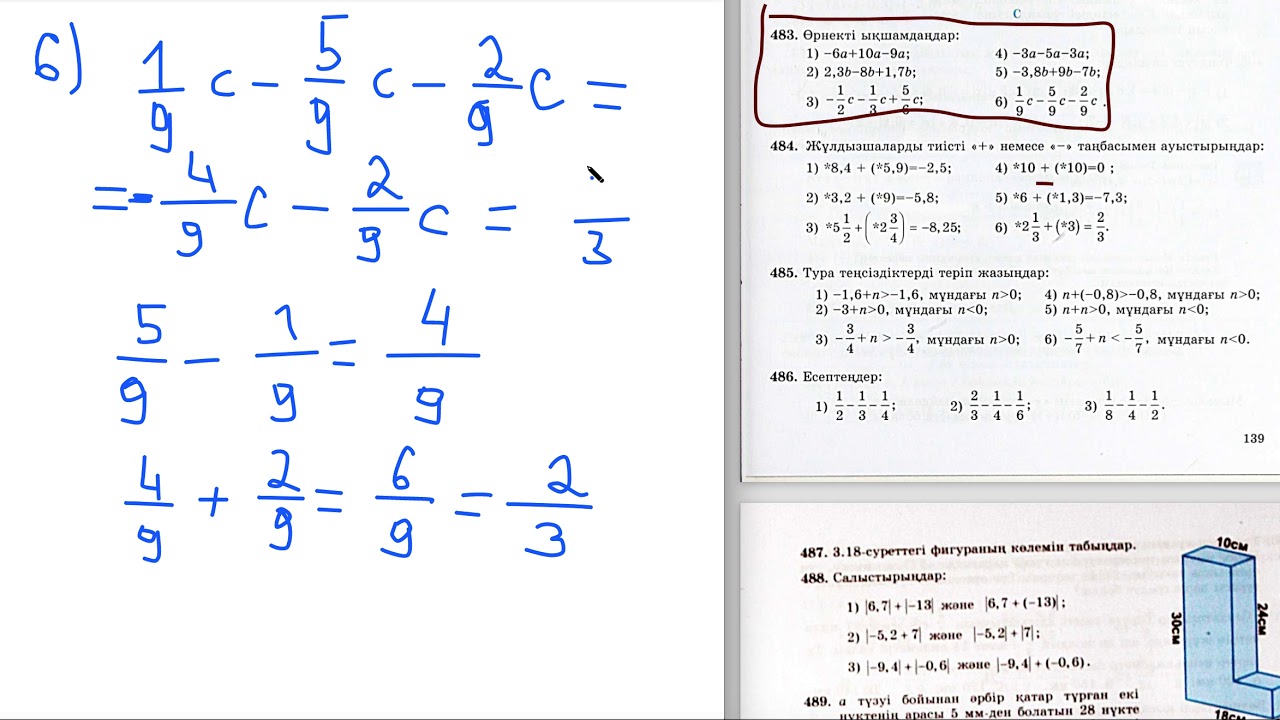 6) 1/9 c − 5/9 c − 2/9 c =
= - 4/9 c − 2/9 c = /3
5/9 − 1/9 = 4/9
4/9 + 2/9 = 6/9 = 2/3
С
483. Өрнекті ықшамдаңдар:
1) −6a+10a−9a; 4) −3a−5a−3a;
2) 2,3b−8b+1,7b; 5) −3,8b+9b−7b;
3) −1/2 c − 1/3 c + 5/6 c; 6) 1/9 c − 5/9 c − 2/9 c .
484. Жұлдызшаларды тиісті «+» немесе «−» таңбасымен ауыстырыңдар:
1) *8,4 + (*5,9)=−2,5; 4) *10 + (*10)=0 ;
2) *3,2 + (*9)=−5,8; 5) *6 + (*1,3)=−7,3;
3) *5 1/2 + (*2 3/4) = −8,25; 6) *2 1/3 + (*3) = 2/3.
485. Тура теңсіздіктерді теріп жазыңдар:
1) −1,6+n>−1,6, мұндағы n>0; 4) n+(−0,8)>−0,8, мұндағы n>0;
2) −3+n>0, мұндағы n<0; 5) n+n>0, мұндағы n<0;
3) −3/4 + n > −3/4, мұндағы n>0; 6) −5/7 + n < −5/7, мұндағы n<0.
486. Есептеңдер:
1) 1/2 − 1/3 − 1/4; 2) 2/3 − 1/4 − 1/6; 3) 1/8 − 1/4 − 1/2.
139
487. 3.18-суреттегі фигураның көлемін табыңдар.
488. Салыстырыңдар:
1) |6,7| + |−13| және |6,7 + (−13)| ;
2) |−5,2 + 7| және |−5,2| + |7|;
3) |−9,4| + |−0,6| және |−9,4| + (−0,6) .
489. a түзуі бойынан әрбір қатар тұрған екі
нүктенің арасы 5 мм-ден болатын 28 нүкте
10см
24см
30см
18см